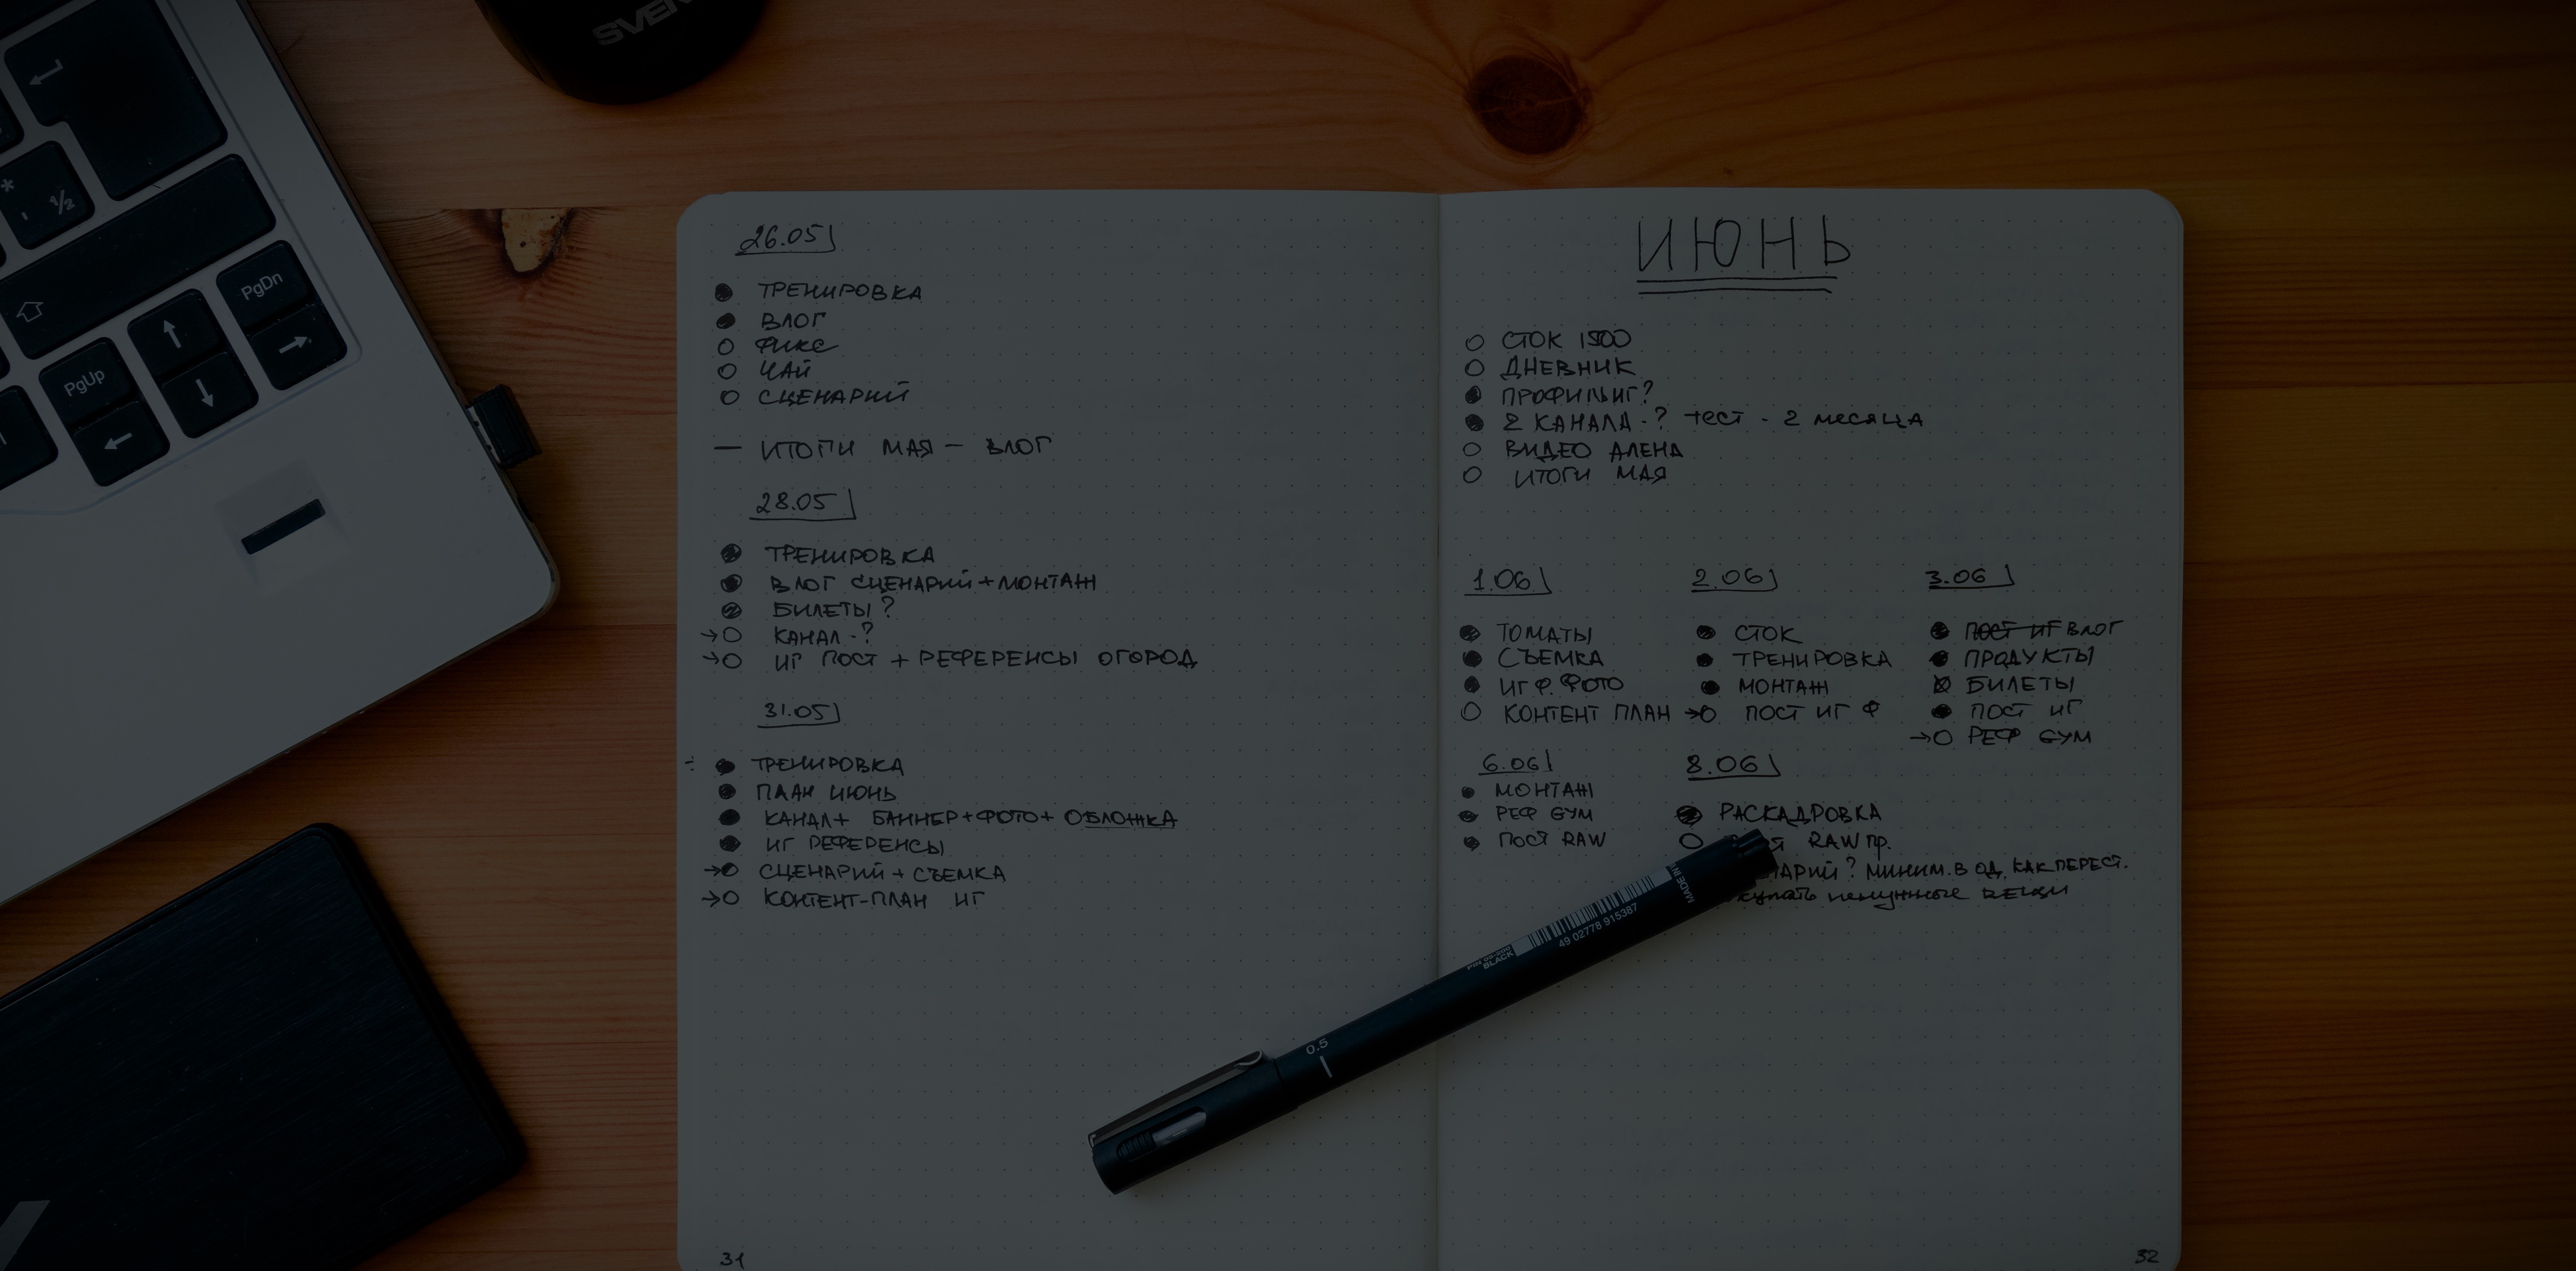 SVEN
*
' ½
PgDn
PgUp
26.05
ТРЕНИРОВКА
ВЛОГ
ФИКС
ЧАЙ
СЦЕНАРИЙ
— ИТОГИ МАЯ — ВЛОГ
28.05
ТРЕНИРОВКА
ВЛОГ СЦЕНАРИЙ + МОНТАЖ
БИЛЕТЫ?
→ КАНАЛ -?
→ ИГ ПОСТ + РЕФЕРЕНСЫ ОГОРОД
31.05
ТРЕНИРОВКА
ПЛАН ИЮНЬ
КАНАЛ + БАННЕР + ФОТО + ОБЛОЖКА
ИГ РЕФЕРЕНСЫ
→ СЦЕНАРИЙ + СЪЕМКА
→ КОНТЕНТ-ПЛАН ИГ
31
ИЮНЬ
СТОК 1500
ДНЕВНИК
ПРОФИЛЬ ИГ?
2 КАНАЛА -? ТЕСТ - 2 МЕСЯЦА
ВИДЕО АЛЕНА
ИТОГИ МАЯ
1.06
ТОМАТЫ
СЪЕМКА
ИГ Ф. ФОТО
КОНТЕНТ ПЛАН
2.06
СТОК
ТРЕНИРОВКА
МОНТАЖ
→ ПОСТ ИГ Ф
3.06
ПОСТ ИГ ВЛОГ
ПРОДУКТЫ
БИЛЕТЫ
ПОСТ ИГ
→ РЕФ GYM
6.06
МОНТАЖ
РЕФ GYM
ПОСТ RAW
8.06
РАСКАДРОВКА
RAW пр.
НАРИЙ? МИНИМ. В ОД. КАК ПЕРЕСТ.
купать ненужные вещи
MADE IN
49 02778 915387
PIN 05-200
BLACK
0.5
32